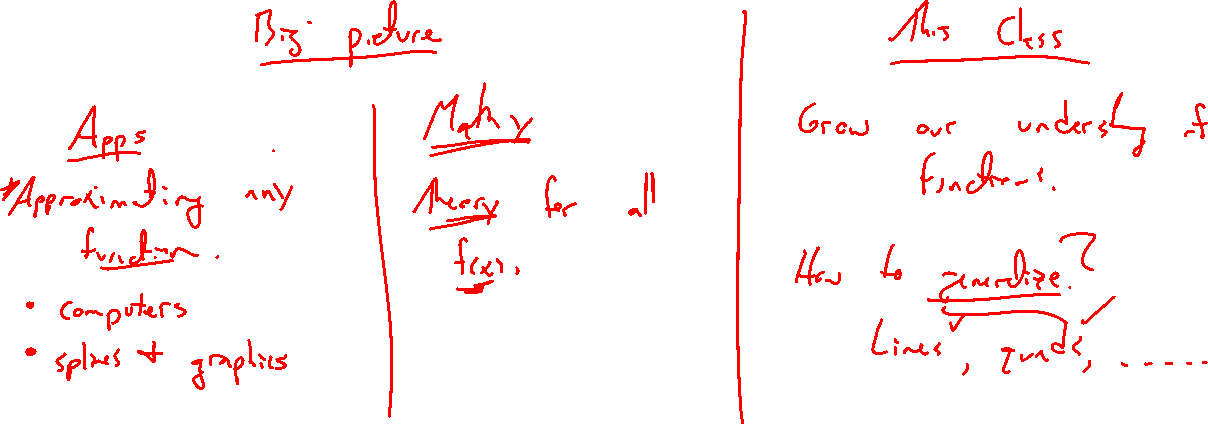 Big picture
Apps
*Approximating any
function.
• computers
• splines + graphics
Mathy
theory for all
f(x).
This Class
Grow our understdg of
functions.
How to generalize?
Lines ✓, quads ✓, ......